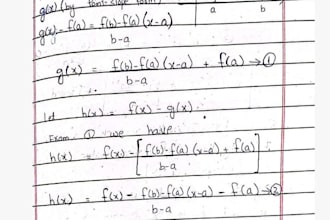 g(x) (by point-slope form)
a b
g(x) - f(a) = f(b)-f(a) (x-a)
b-a
g(x) = f(b)-f(a) (x-a) + f(a) → ①
b-a
let h(x) = f(x) - g(x).
From ① we have
h(x) = f(x) - [f(b)-f(a) (x-a) + f(a)]
b-a
h(x) = f(x) - f(b)-f(a) (x-a) - f(a) → ②
b-a